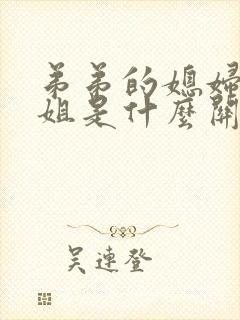 弟弟的媳婦
姐是什麼關
吳連登